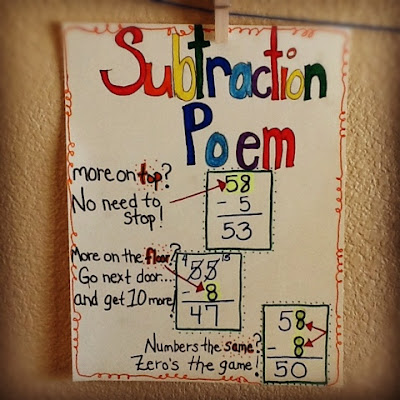 Subtraction
Poem
more on top?
No need to
stop!
58
- 5
53
More on the floor?
Go next door...
and get 10 more!
4 15
55
- 8
47
Numbers the same?
Zero's the game!
58
- 8
50